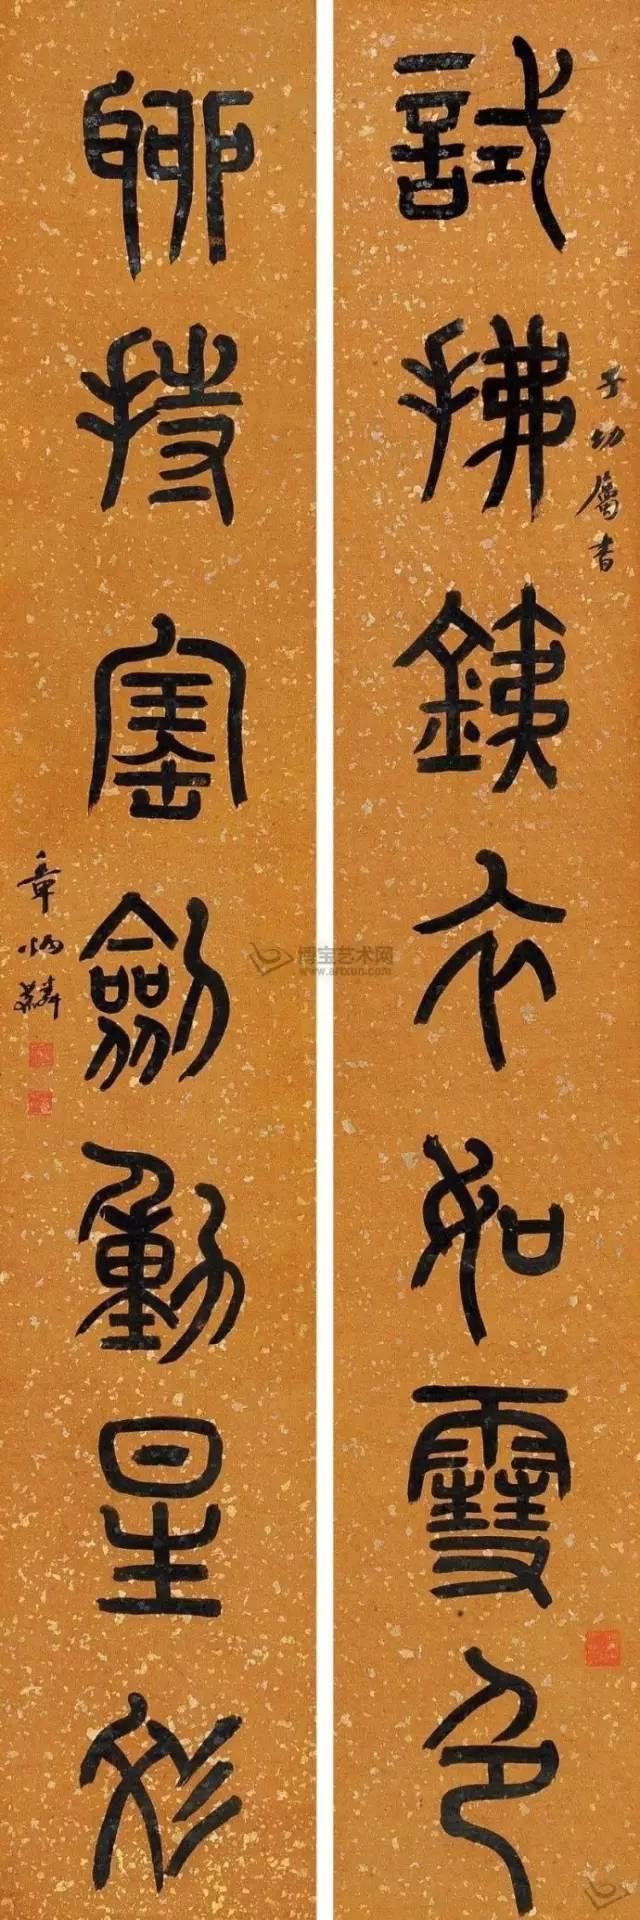 試拂銕衣如雪色
子幼屬書
聊持寚劍動星彣
章炳麟
博宝艺术网
www.artxun.com